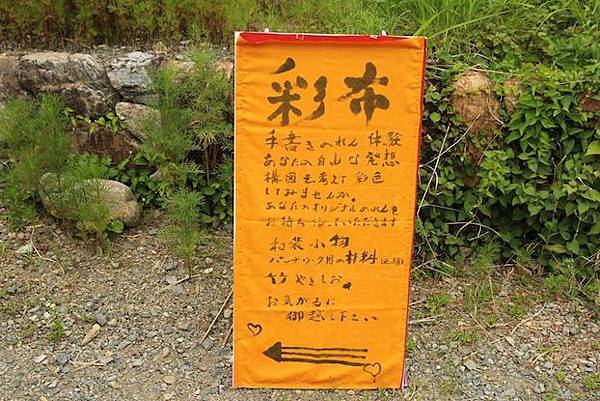 彩布
手書きのれん 体験
あなたの自由な発想
構図を考えて彩色
してみませんか。
あなたのオリジナルのれんを
お持ち帰っていただきます
和装小物
パッチワーク用の材料
竹やきしお
お気がるに
御越し下さい